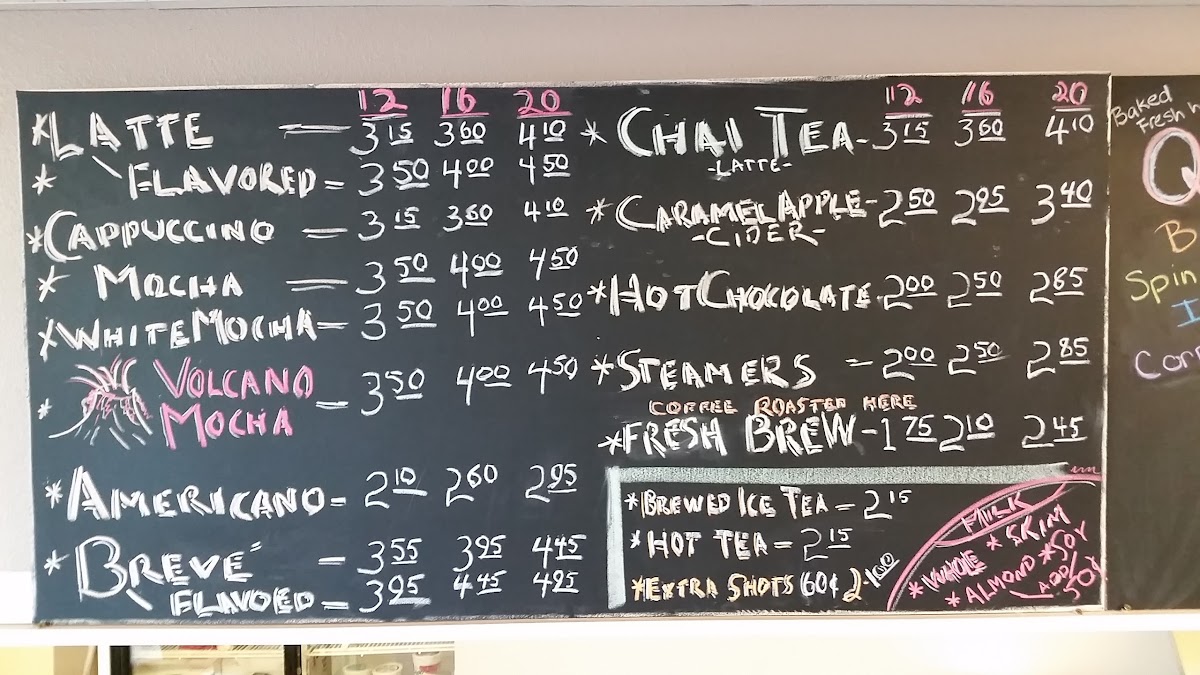 12 16 20
*LATTE = 3 15 3 60 4 10
* FLAVORED = 3 50 4 00 4 50
*CAPPUCCINO = 3 15 3 60 4 10
* MOCHA = 3 50 4 00 4 50
*WHITE MOCHA = 3 50 4 00 4 50
* VOLCANO
MOCHA - 3 50 4 00 4 50
*AMERICANO = 2 10 2 60 2 95
*BREVE = 3 55 3 95 4 45
FLAVOED = 3 95 4 45 4 95
12 16 20
* CHAI TEA - 3 15 3 60 4 10
-LATTE-
*CARAMEL APPLE - 2 50 2 95 3 40
-CIDER-
*HOT CHOCOLATE - 2 00 2 50 2 85
*STEAMERS = 2 00 2 50 2 85
COFFEE ROASTED HERE
*FRESH BREW - 1 75 2 10 2 45
*BREWED ICE TEA = 2 15
*HOT TEA = 2 15
*EXTRA SHOTS 60¢ 2/1 00
MILK
*WHOLE *SKIM
*ALMOND *SOY
ADD/50¢
Baked
Fresh
Q
B
Spin
I
Corn